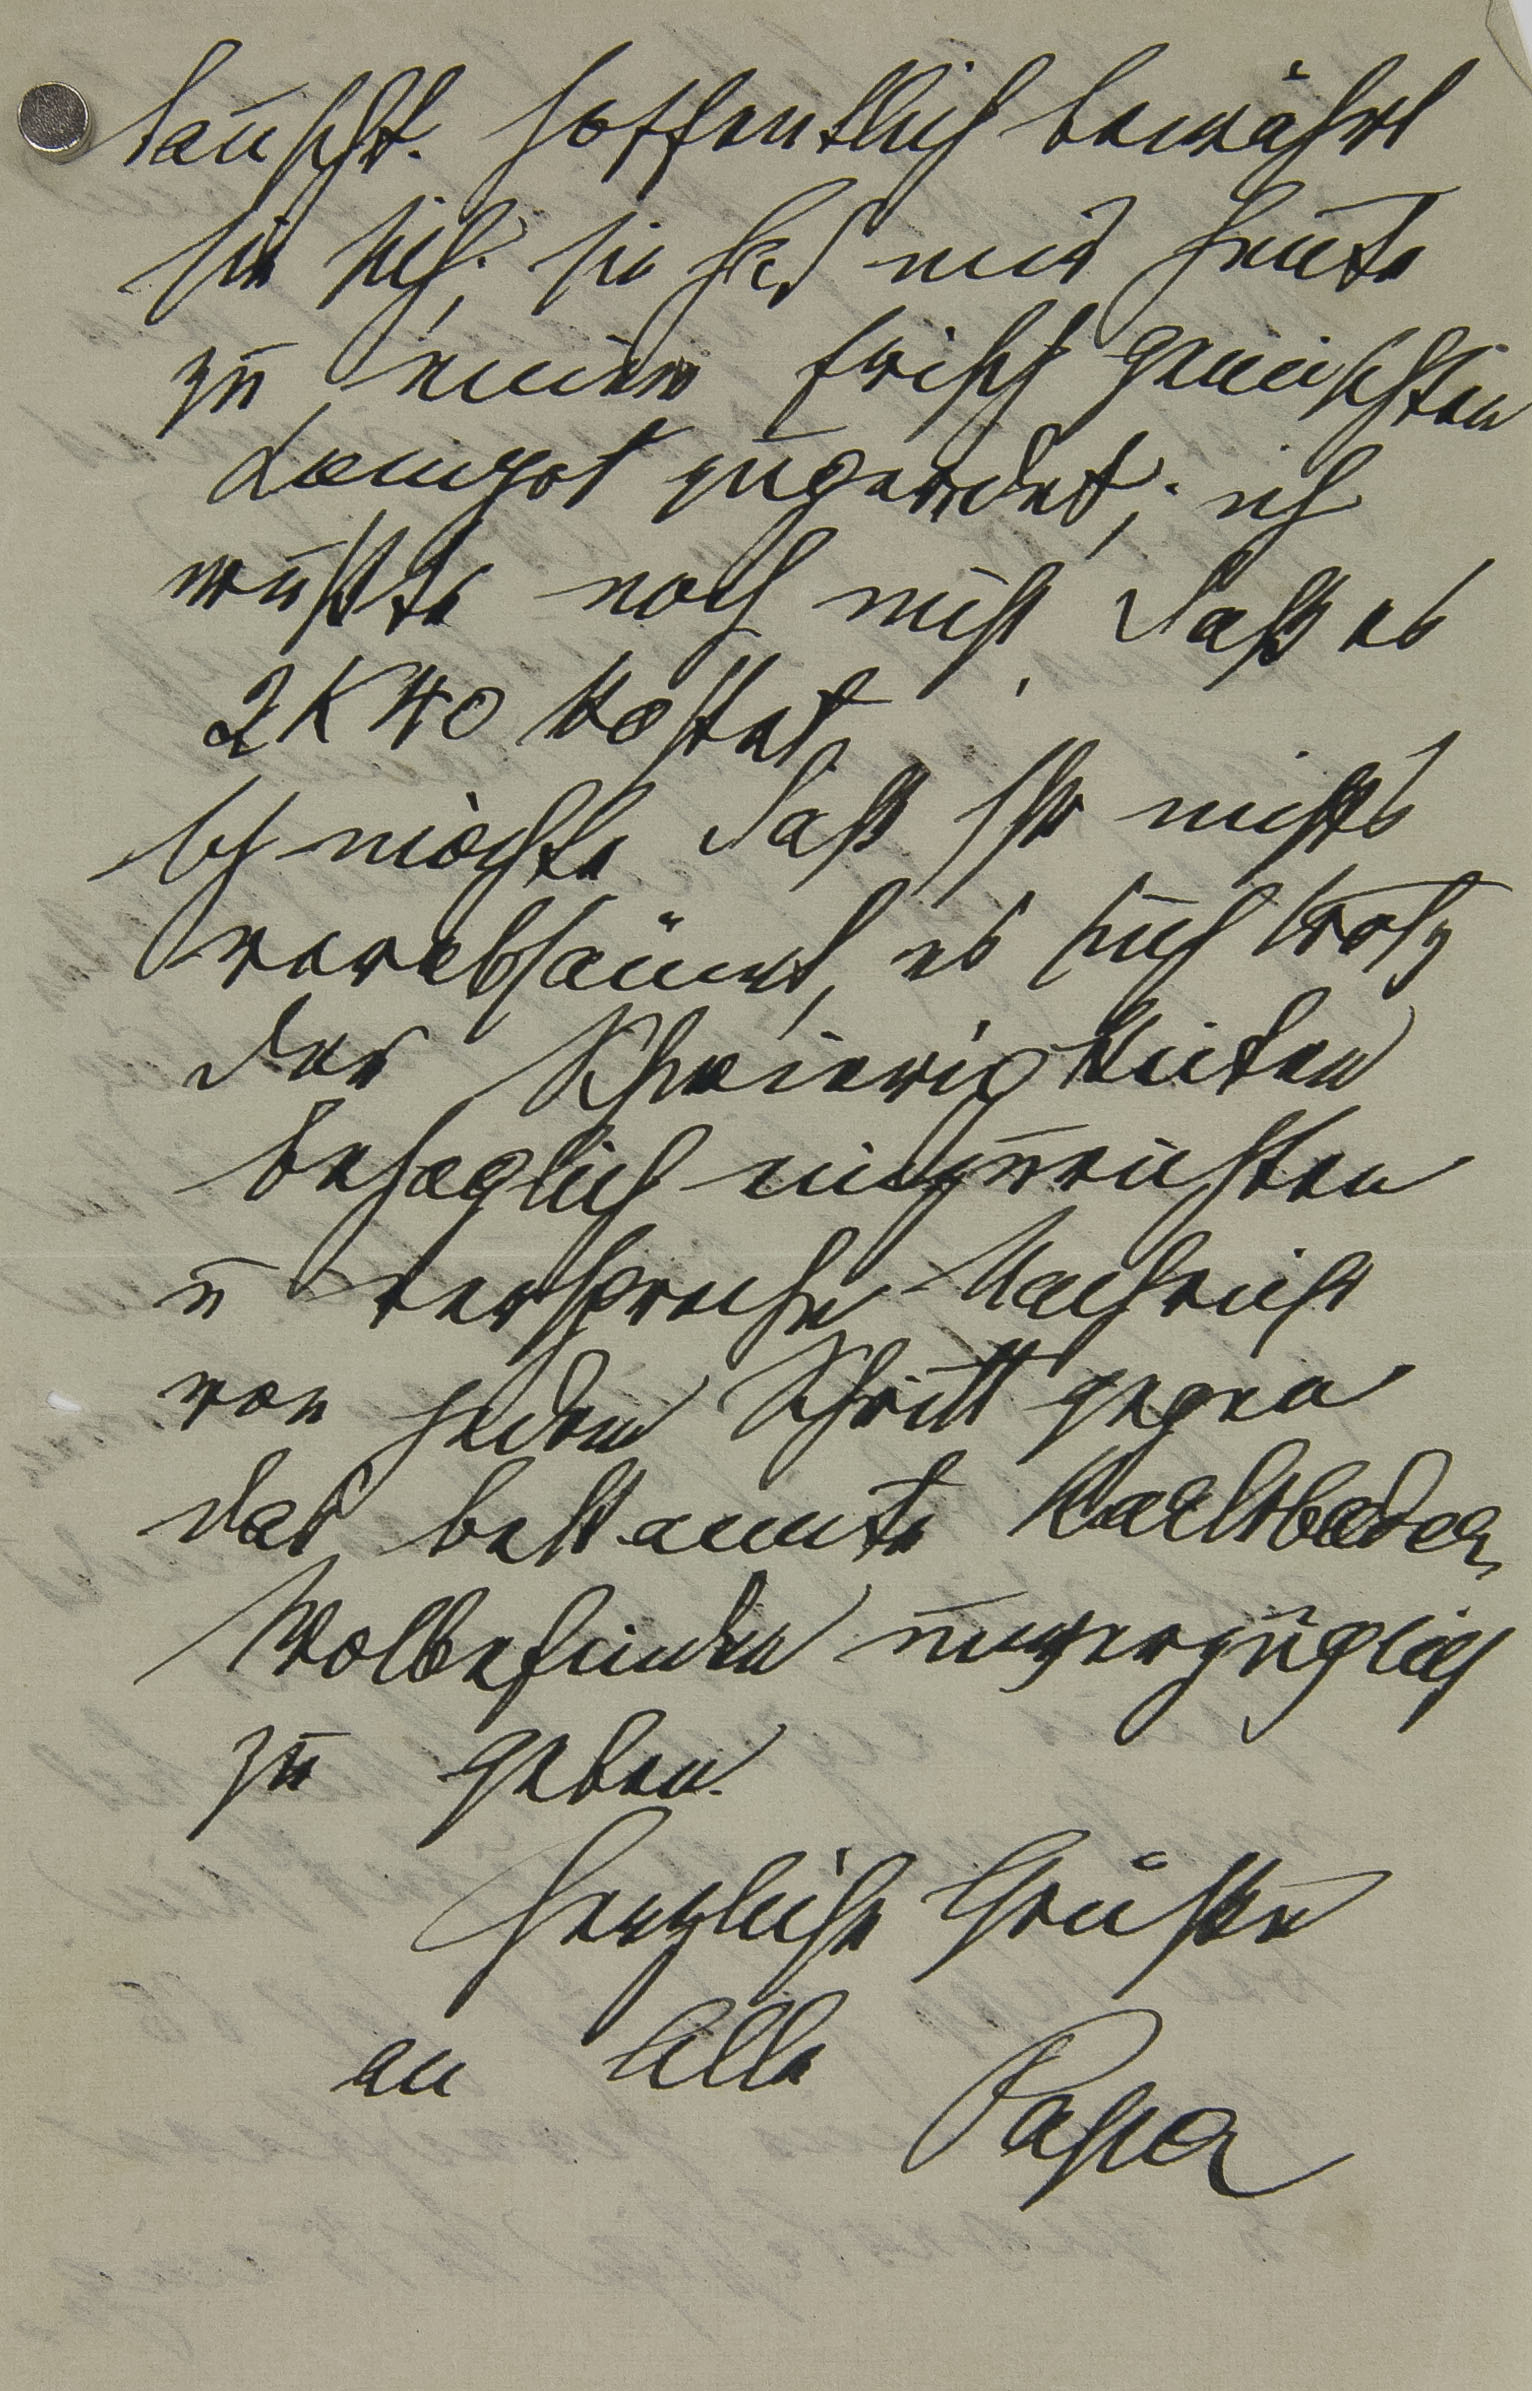 tauscht. Hoffentlich bewährt
sie sich; sie hat mir heute
zu einem frisch gemischten
Compot zugeredet; ich
wußte noch nicht, daß es
2 K 40 kostet.
Ich möchte daß Ihr nichts
verabsäumt, es Euch trotz
der Schwierigkeiten
behaglich einzurichten
u verspreche Nachricht
von jedem Schritt gegen
das bekannte Karlsbader
Wolbefinden unverzüglich
zu geben.
Herzliche Grüße
an Alle
Papa